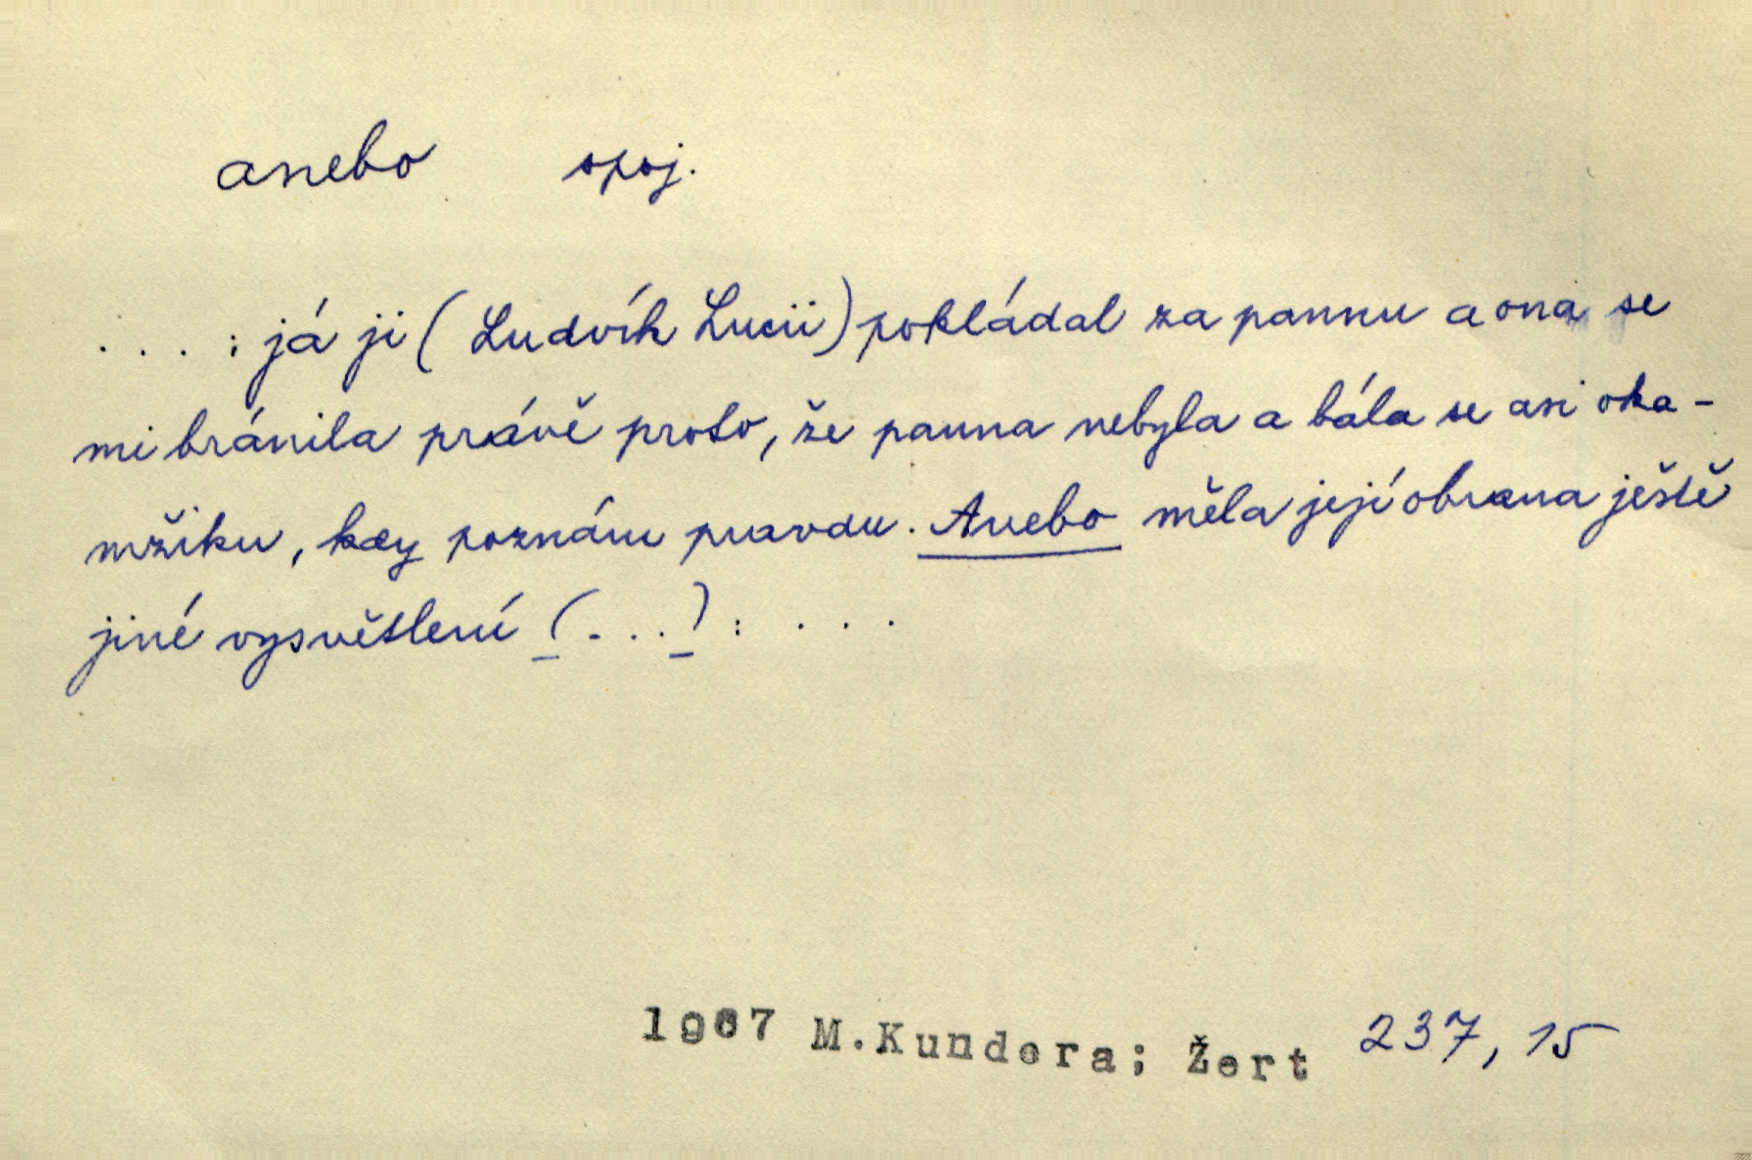 anebo spoj.
. . . : já ji (Ludvík Lucii) pokládal za pannu a ona se
mi bránila právě proto, že panna nebyla a bála se asi oka-
mžiku, kdy poznám pravdu. Anebo měla její obrana ještě
jiné vysvětlení (...): . . .
1967 M.Kundera; Žert 237, 15